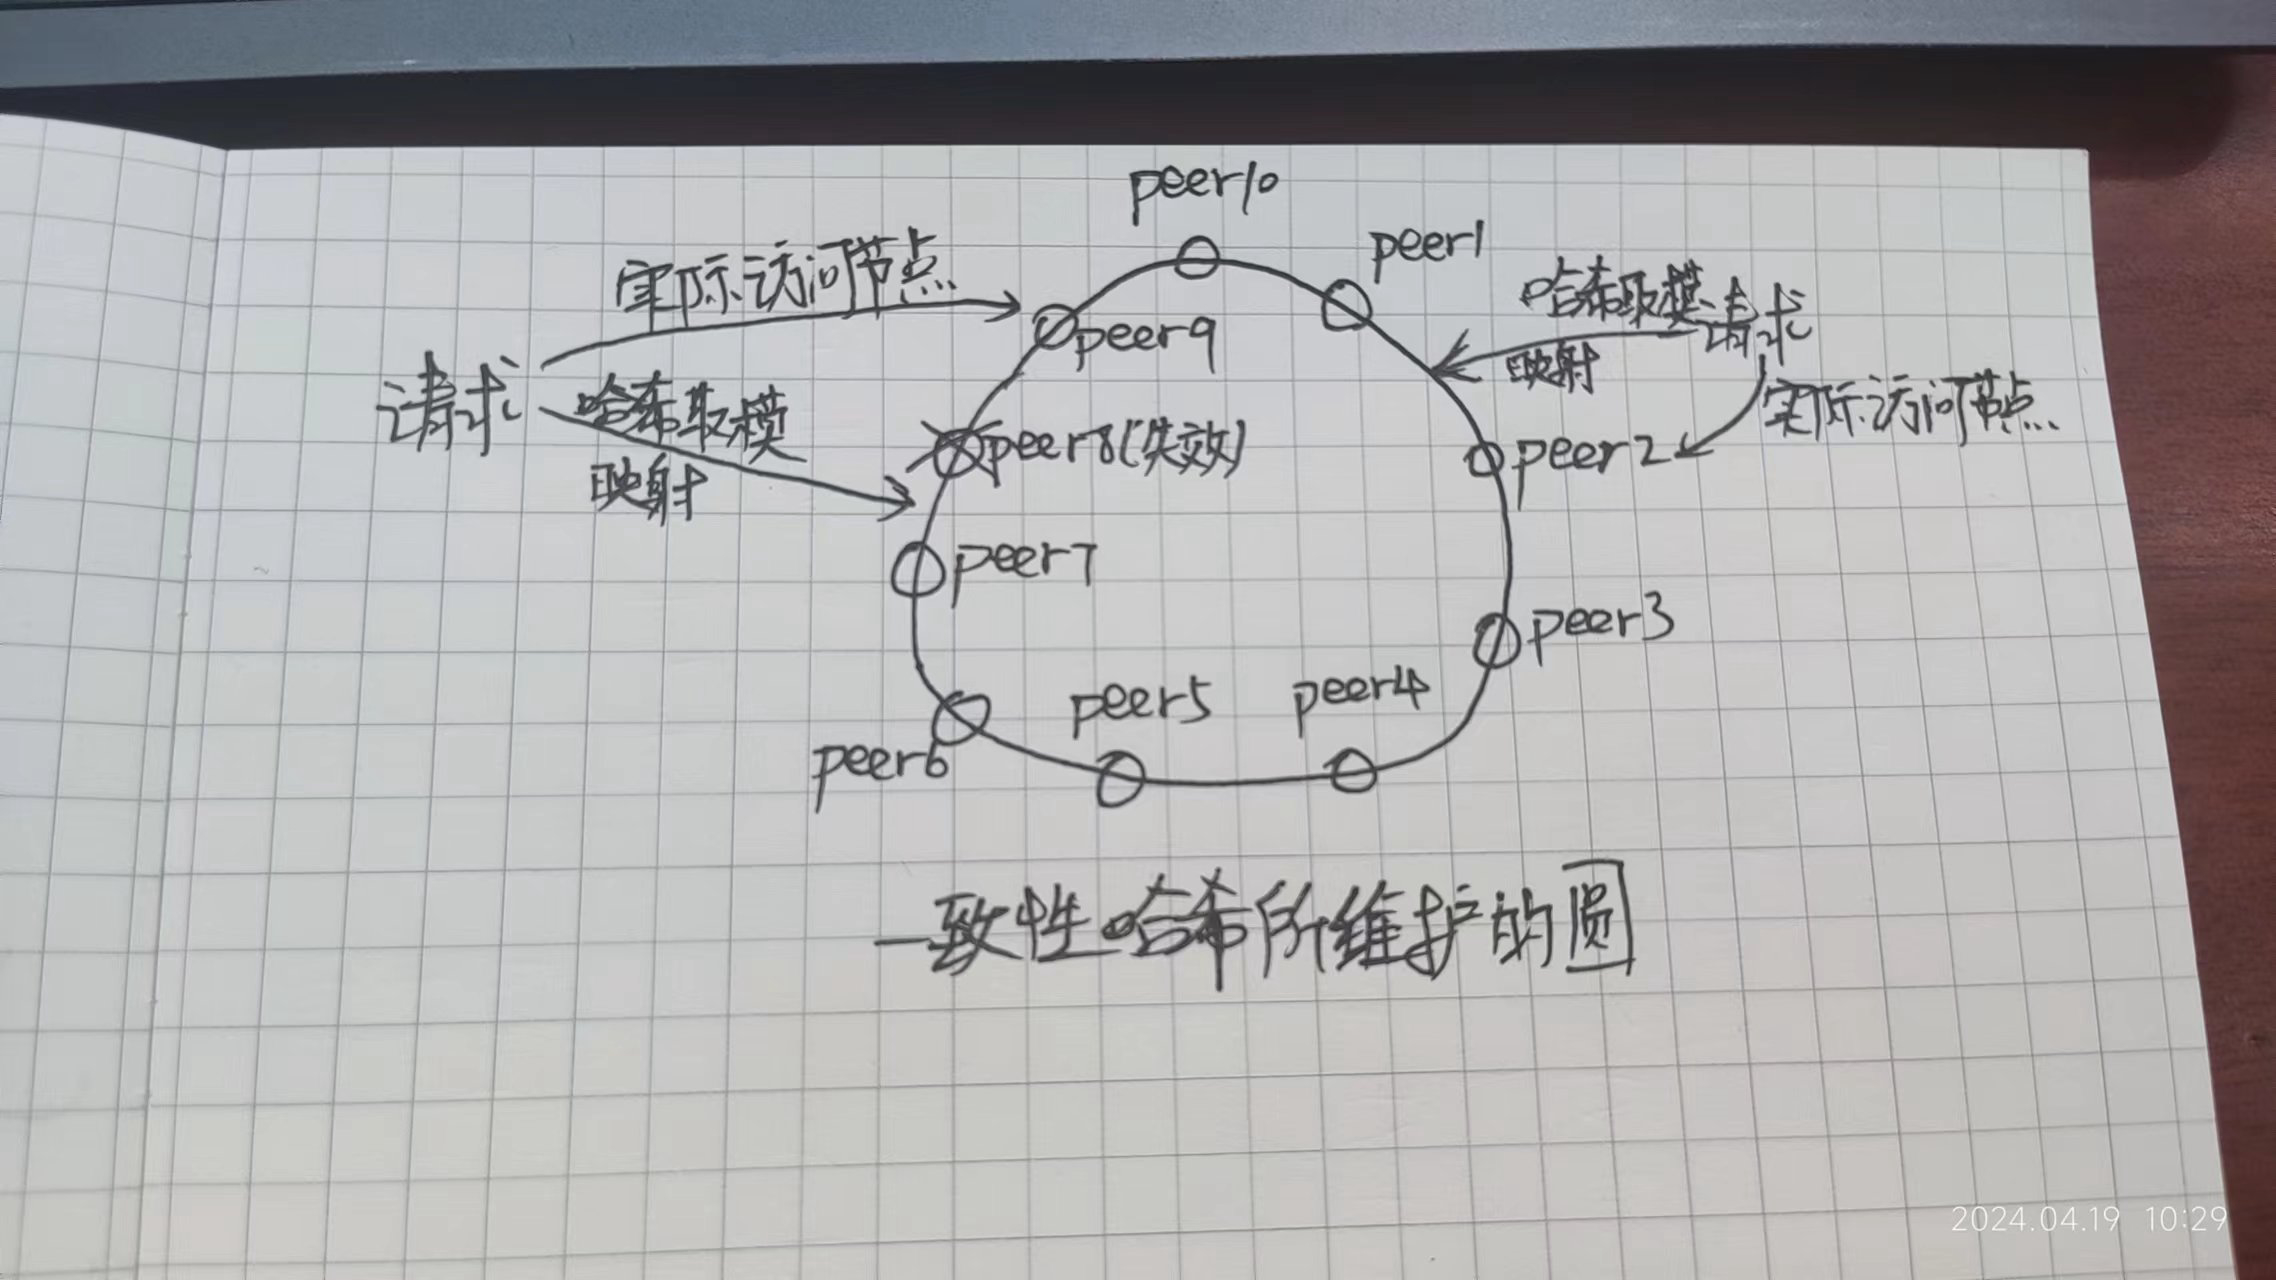 peer10
peer1
实际访问节点
哈希取模
请求
peer9
映射
请求
哈希取模
实际访问节点
peer8(失效)
peer2
映射
peer7
peer3
peer5
peer4
peer6
一致性哈希所维护的圆
2024.04.19 10:29